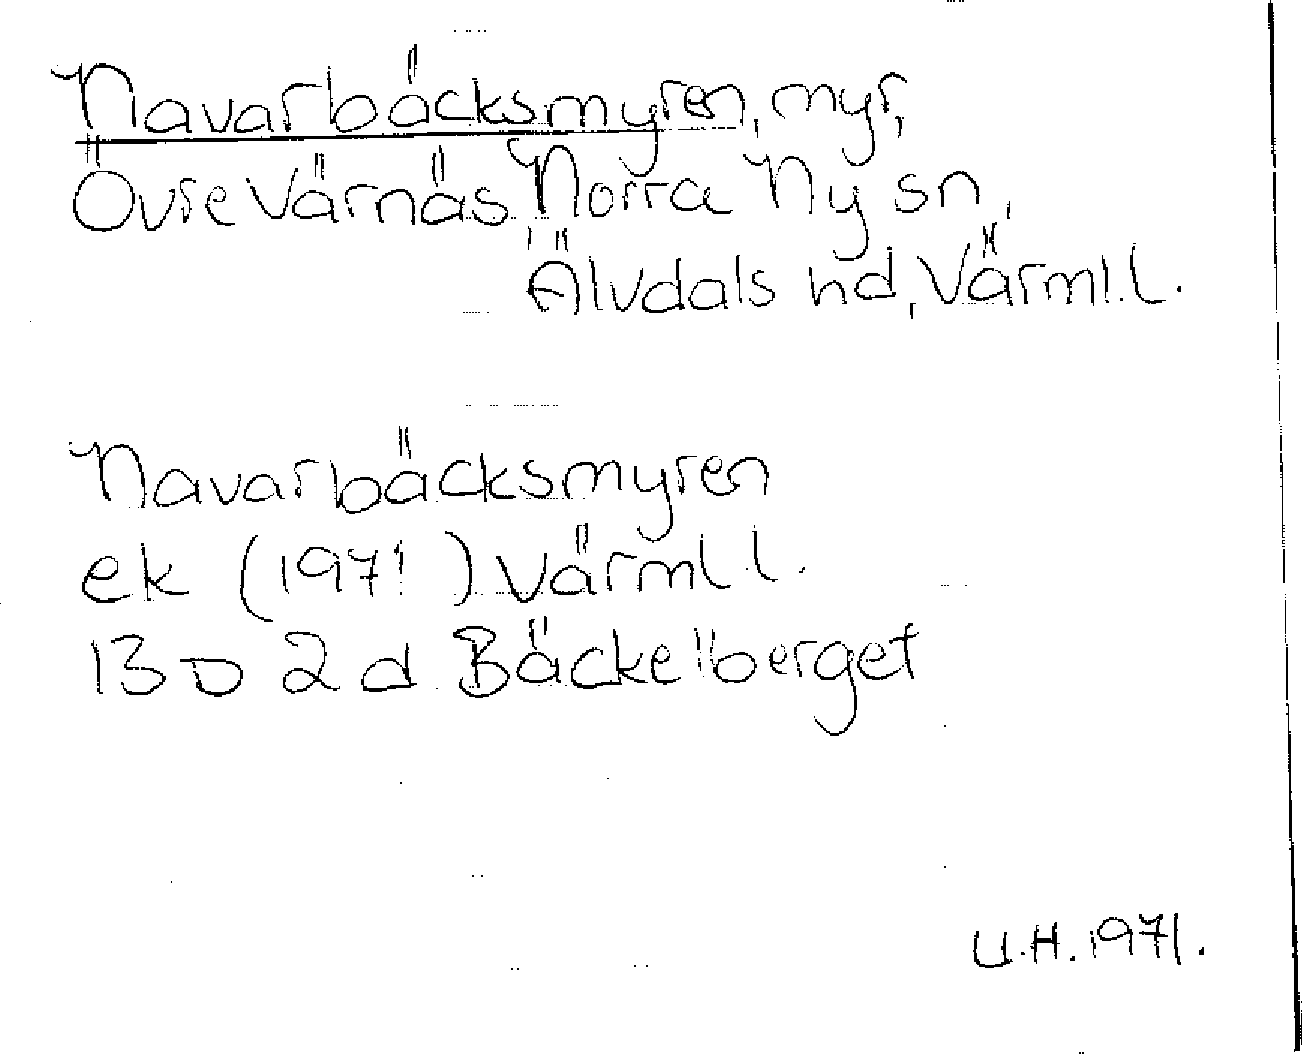 Navarbäcksmyren, myr,
Övre Värnäs Norra Ny sn,
Älvdals hd, Värml. l.
Navarbäcksmyren
ek (1971) Värml l.
13 D 2 d Bäckelberget
U.H. 1971.